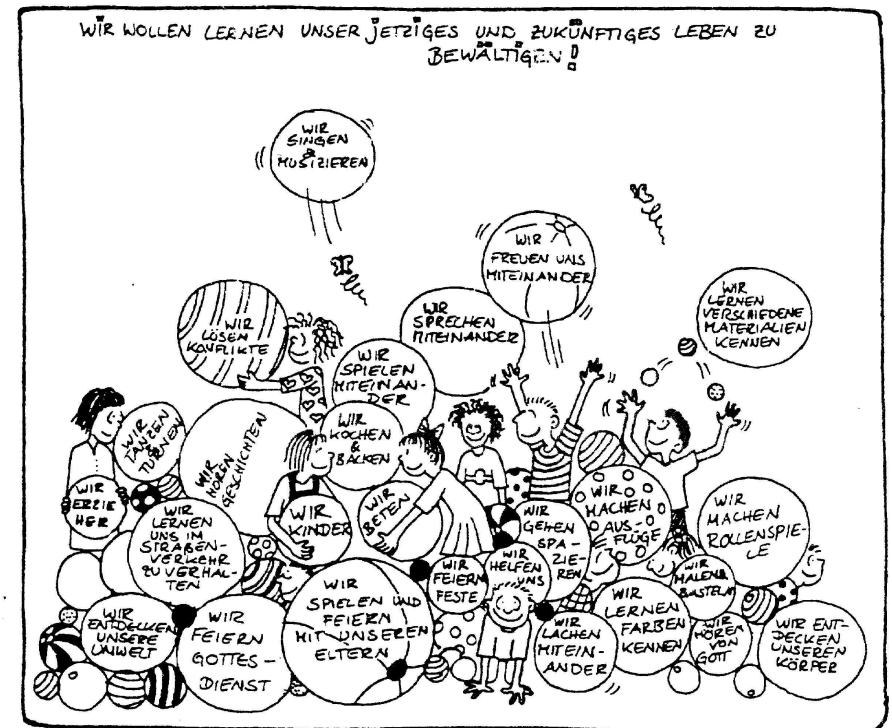 WIR WOLLEN LERNEN UNSER JETZIGES UND ZUKÜNFTIGES LEBEN ZU
BEWÄLTIGEN!
WIR
SINGEN
&
MUSIZIEREN
WIR
FREUEN UNS
MITEINANDER
WIR
LERNEN
VERSCHIEDENE
MATERIALIEN
KENNEN
WIR
LÖSEN
KONFLIKTE
WIR
SPRECHEN
MITEINANDER
WIR
SPIELEN
MITEINAN-
DER
WIR
TANZEN
&
TURNEN
WIR
HÖREN
GESCHICHTEN
WIR
KOCHEN
&
BACKEN
WIR
ERZIE
HER
WIR
LERNEN
UNS IM
STRAßEN-
VERKEHR
ZU VERHAL-
TEN
WIR
KINDER
WIR
BETEN
WIR
GEHEN
SPA-
ZIE-
REN
WIR
MACHEN
AUS-
FLÜGE
WIR
MACHEN
ROLLENSPIE-
LE
WIR
FEIERN
FESTE
WIR
HELFEN
UNS
WIR
MALEN &
BASTELN
WIR
ENTDECKEN
UNSERE
UMWELT
WIR
FEIERN
GOTTES-
DIENST
WIR
SPIELEN UND
FEIERN
MIT UNSEREN
ELTERN
WIR
LACHEN
MITEIN-
ANDER
WIR
LERNEN
FARBEN
KENNEN
WIR
HÖREN
VON
GOTT
WIR ENT-
DECKEN
UNSEREN
KÖRPER